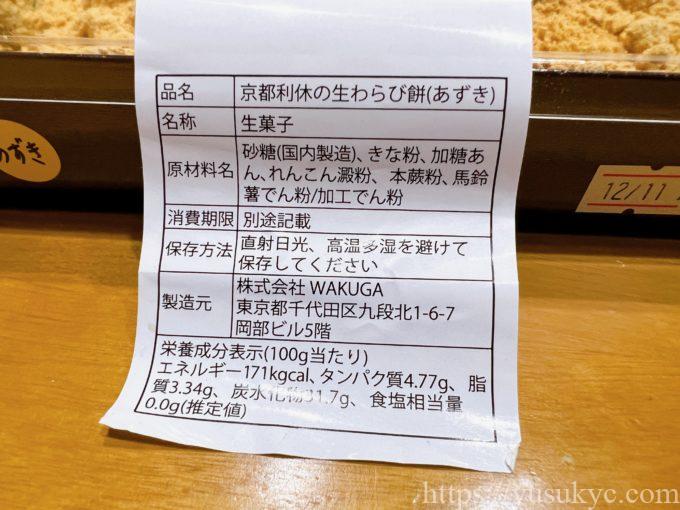 品名 京都利休の生わらび餅(あずき)
名称 生菓子
原材料名 砂糖(国内製造)、きな粉、加糖あ
ん、れんこん澱粉、本蕨粉、馬鈴
薯でん粉/加工でん粉
消費期限 別途記載
保存方法 直射日光、高温多湿を避けて
保存してください
製造元 株式会社 WAKUGA
東京都千代田区九段北1-6-7
岡部ビル5階
栄養成分表示(100g当たり)
エネルギー171kgcal、タンパク質4.77g、脂
質3.34g、炭水化物31.7g、食塩相当量
0.0g(推定値)
ずき
12/11
https://yusukyc.com